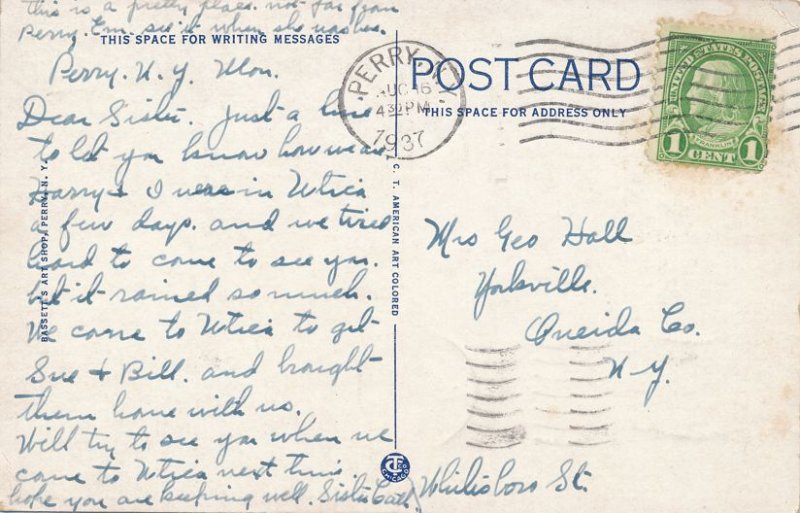 this is a pretty place. not far from
Perry. Em. see it when she was here.
THIS SPACE FOR WRITING MESSAGES
Perry. N.Y. Mon.
Dear Sister. Just a line
to let you know how we are
Harry & I were in Utica
a few days. and we tried
hard to come to see you.
but it rained so much.
We came to Utica to get
Sue & Bill. and brought
them home with us.
Will try to see you when we
come to Utica next time.
hope you are keeping well. Sister Cath.
BASSETT'S ART SHOP, PERRY, N. Y.
C. T. AMERICAN ART COLORED
PERRY
AUG 16
4 30 PM
1937
POST CARD
THIS SPACE FOR ADDRESS ONLY
UNITED STATES POSTAGE
FRANKLIN
1 CENT 1
Mrs Geo Hall
Yorkville.
Oneida Co.
N-Y.
Whitesboro St.
CHICAGO